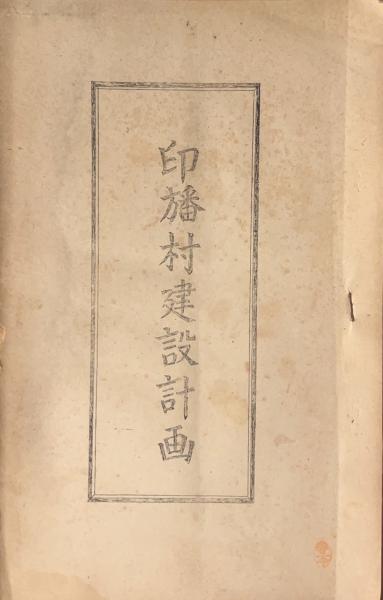 印旛村建設計画